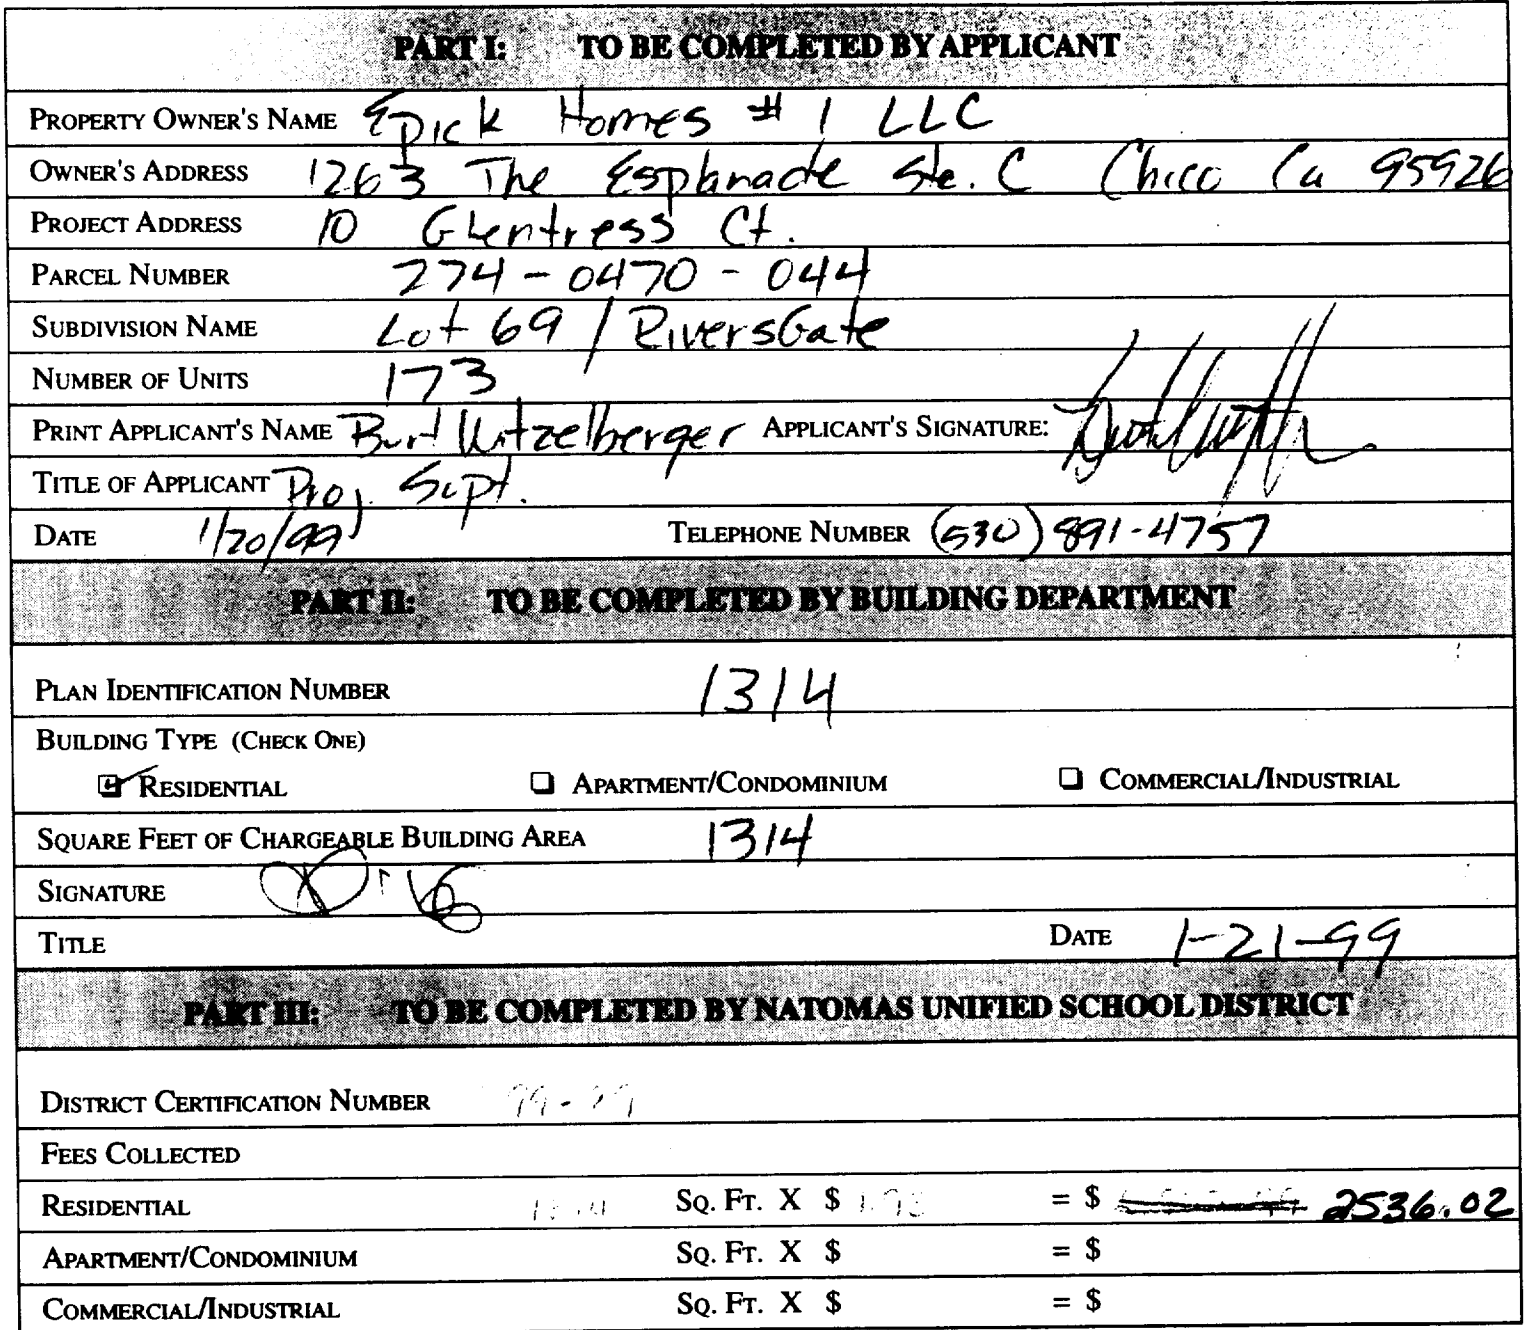 PART I: TO BE COMPLETED BY APPLICANT
PROPERTY OWNER'S NAME Epick Homes # 1 LLC
OWNER'S ADDRESS 1263 The Esplanade Ste. C Chico Ca 95926
PROJECT ADDRESS 10 Glentress Ct.
PARCEL NUMBER 274-0470-044
SUBDIVISION NAME Lot 69 / RiversGate
NUMBER OF UNITS 173
PRINT APPLICANT'S NAME Burt Witzelberger APPLICANT'S SIGNATURE:
TITLE OF APPLICANT Proj. Supt.
DATE 1/20/99 TELEPHONE NUMBER (530) 891-4757
PART II: TO BE COMPLETED BY BUILDING DEPARTMENT
PLAN IDENTIFICATION NUMBER 1314
BUILDING TYPE (CHECK ONE)
RESIDENTIAL APARTMENT/CONDOMINIUM COMMERCIAL/INDUSTRIAL
SQUARE FEET OF CHARGEABLE BUILDING AREA 1314
SIGNATURE
TITLE DATE 1-21-99
PART III: TO BE COMPLETED BY NATOMAS UNIFIED SCHOOL DISTRICT
DISTRICT CERTIFICATION NUMBER
FEES COLLECTED
RESIDENTIAL 1314 SQ. FT. X $ 1.93 = $ 2536.02
APARTMENT/CONDOMINIUM SQ. FT. X $ = $
COMMERCIAL/INDUSTRIAL SQ. FT. X $ = $